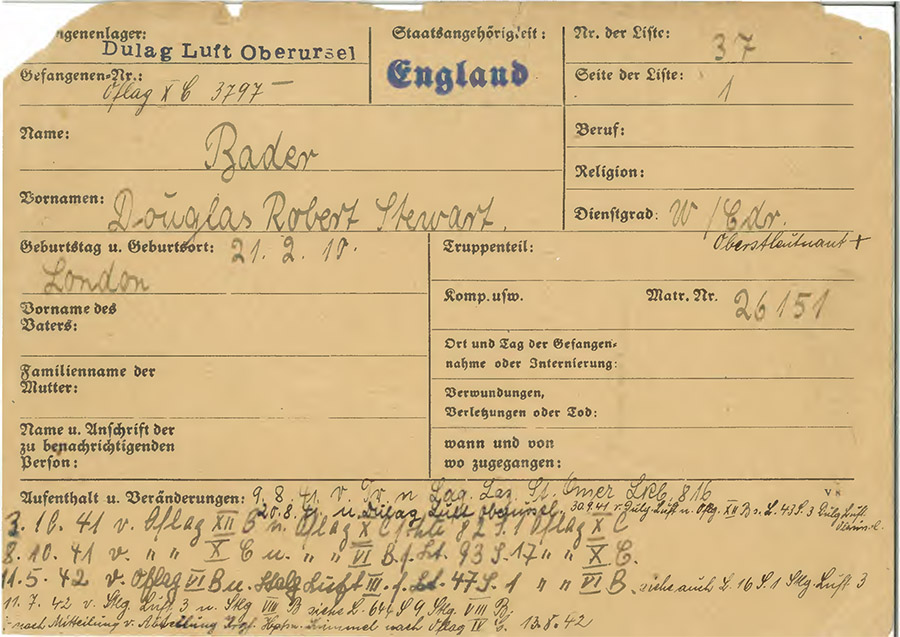 genenlager:
Dulag Luft Oberursel
Staatsangehörigkeit:
England
Nr. der Liste: 37
Gefangenen-Nr.:
Oflag X C 3797 —
Seite der Liste: 1
Name: Bader
Beruf:
Religion:
Vornamen: Douglas Robert Stewart.
Dienstgrad: W/Cdr.
Oberstleutnant +
Geburtstag u. Geburtsort: 21. 2. 10.
London
Truppenteil:
Komp. usw.
Matr. Nr. 26151
Vorname des
Vaters:
Ort und Tag der Gefangen-
nahme oder Internierung:
Familienname der
Mutter:
Verwundungen,
Verletzungen oder Tod:
Name u. Anschrift der
zu benachrichtigenden
Person:
wann und von
wo zugegangen:
Aufenthalt u. Veränderungen: 9. 8. 41 v. n Laz. St. Omer 816
V 8
20.8. 41 Dulag Luft Oberursel, 30.9.41 v. Dulg Luft n. Oflg. XII B s. L. 43 S. 3 Dulg Luft
3. 10. 41 v. Oflag XII B n. Oflag X C 82 S. 1 Oflag X C
8. 10. 41 v. " " X C u. " " VI B. f. Lt. 93 S. 17 " " X C.
11. 5. 42 v. Oflag VI B u. Stalg Luft III. f. Lt. 47 S. 1 " " VI B siehe auch L. 16 S. 1 Stlg. Luft 3
11. 7. 42 v. Stlg. Luft 3 n. Stlg VIII B siehe L. 644 S 9 Stlg. VIII B;
nach Mitteilung v. Abteilung Hptm. nach Oflag IV C. 13. 8. 42